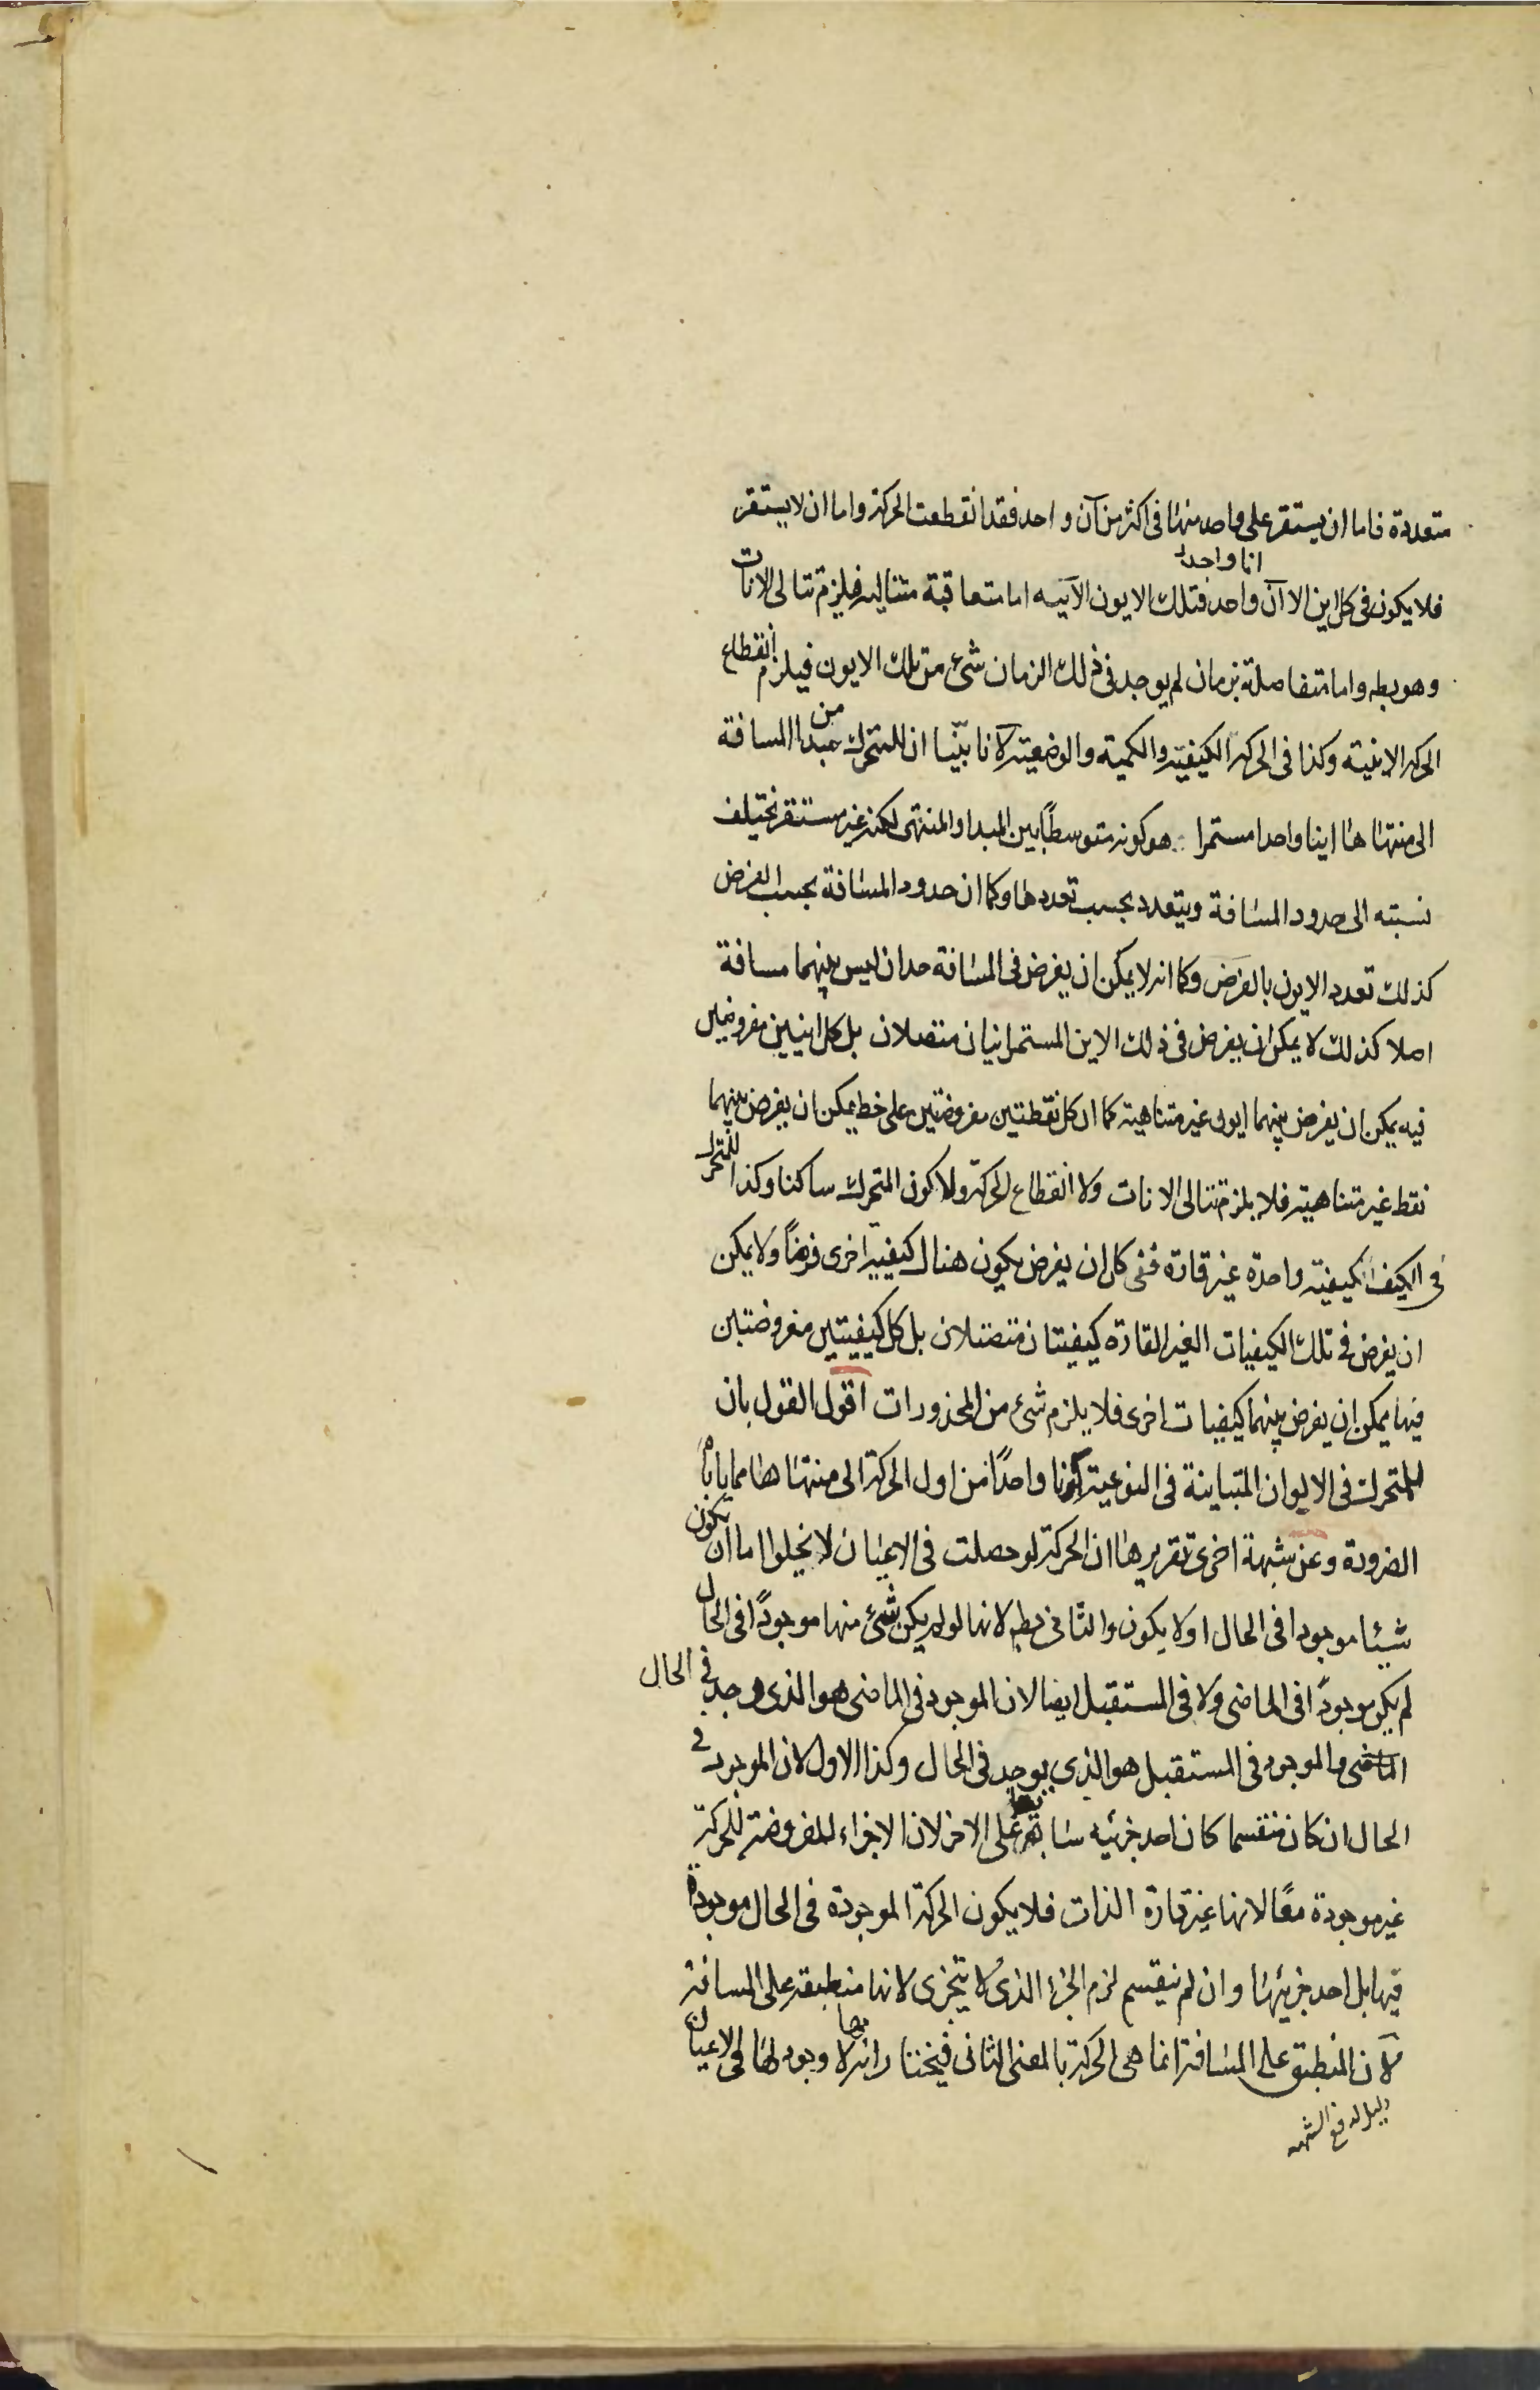 متعددة فاما ان يستقر على واحد منها فى اكثر من آن واحد فقد انقطعت الحركة واما ان لا يستقر
انا واحدا
فلا يكون فى كل اين الا آن واحد فتلك الايون الآنيه اما متعاقبة متتاليه فيلزم تتالى الانات
وهو بط واما متفاصلة بزمان لم يوجد فى ذلك الزمان شئ من تلك الايون فيلزم انقطاع
الحركة الاينية وكذا فى الحركة الكيفية والكمية والوضعية لانا بيّنا ان للمتحرك من مبدا المسافة
الى منتهاها اينا واحدا مستمرا هو كونه متوسطًا بين المبدا والمنتهى لكنه غير مستقر تختلف
نسبته الى حدود المسافة ويتعدد بحسب تعددها وكما ان حدود المسافة بحسب الفرض
كذلك تعدد الايون بالفرض وكما انه لا يمكن ان يفرض فى المسافة حدان ليس بينهما مسافة
اصلا كذلك لا يمكن ان يفرض فى ذلك الاين المستمر اينان متصلان بل كل اينين مفروضين
فيه يمكن ان يفرض بينهما ايون غير متناهية كما ان كل نقطتين مفروضتين على خط يمكن ان يفرض بينهما
نقط غير متناهية فلا يلزم تتالى الانات ولا انقطاع الحركة ولا كون المتحرك ساكنا وكذا للمتحرك
فى الكيف كيفية واحدة غير قارة ففى كل ان يفرض يكون هناك كيفية اخرى فرضًا ولا يمكن
ان يفرض فى تلك الكيفيات الغير القارة كيفيتان متصلان بل كل كيفيتين مفروضتين
فيها يمكن ان يفرض بينهما كيفيات اخرى فلا يلزم شئ من المحذورات اقول القول بان
للمتحرك فى الالوان المتباينة فى النوعية كونا واحدًا من اول الحركة الى منتهاها مما ياباه
الضرورة وعن شبهة اخرى تقريرها ان الحركة لو حصلت فى الاعيان لا يخلوا اما ان يكون
شيئا موجودا فى الحال او لا يكون والثانى بط لانها لو لم يكن شئ منها موجودًا فى الحال
لم يكن موجودًا فى الماضى ولا فى المستقبل ايضا لان الموجود فى الماضى هو الذى وجد فى الحال
الماضى والموجود فى المستقبل هو الذى يوجد فى الحال وكذا الاول لان الموجود فى
الحال ان كان منقسما كان احد جزئيه سابقا على الاخر لان الاجزاء المفروضة للحركة
غير موجودة معًا لانها غير قارة الذات فلا يكون الحركة الموجودة فى الحال موجودة
فيها بل احد جزئيها وان لم ينقسم لزم الجزء الذى لا يتجزى لانها منطبقة على المسافة
لان المنطبق على المسافة انما هى الحركة بالمعنى الثانى فيختار انه لا وجود لها فى الاعيان
دليل لدفع الشبهه